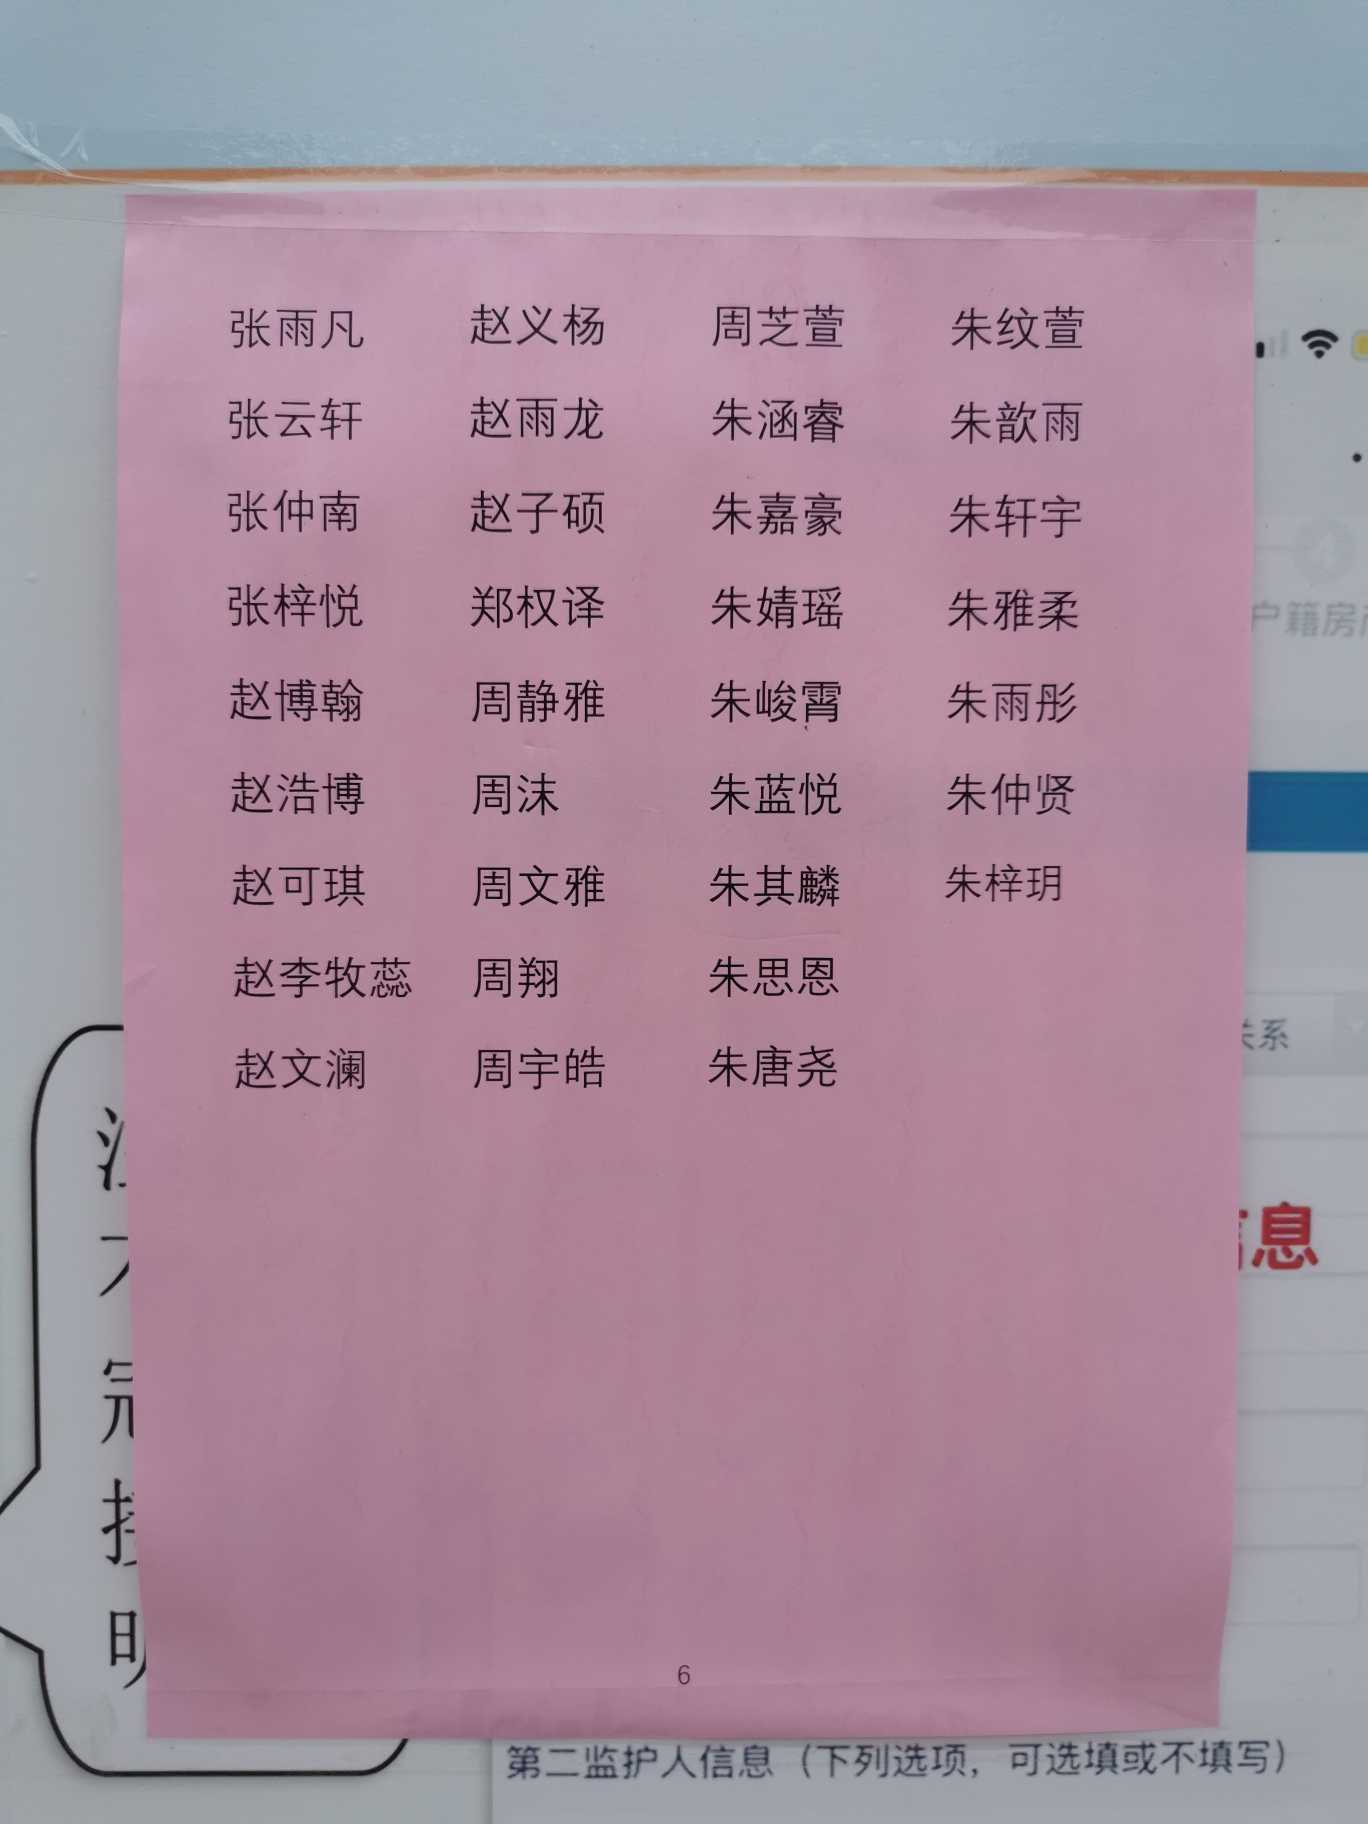 张雨凡 赵义杨 周芝萱 朱纹萱
张云轩 赵雨龙 朱涵睿 朱歆雨
张仲南 赵子硕 朱嘉豪 朱轩宇
张梓悦 郑权译 朱婧瑶 朱雅柔
赵博翰 周静雅 朱峻霄 朱雨彤
赵浩博 周沫 朱蓝悦 朱仲贤
赵可琪 周文雅 朱其麟 朱梓玥
赵李牧蕊 周翔 朱思恩
赵文澜 周宇皓 朱唐尧
6
户籍房
关系
信息
第二监护人信息（下列选项，可选填或不填写）